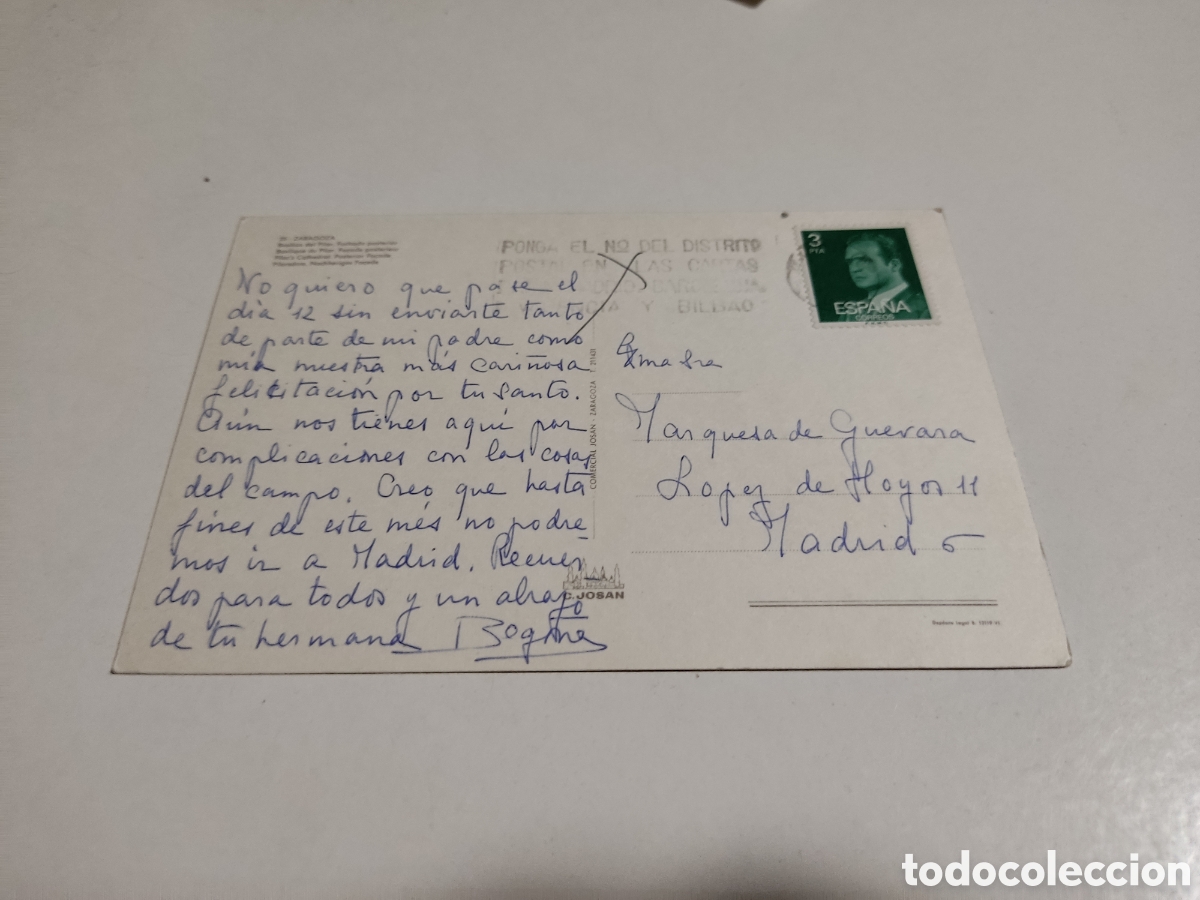 29 ZARAGOZA
Basílica del Pilar. Fachada posterior
PONGA EL Nº DEL DISTRITO
POSTAL EN LAS CARTAS
Y BILBAO
3
PTA
ESPAÑA
CORREOS
No quiero que pase el
día 12 sin enviarte tanto
de parte de mi padre como
mía nuestra más cariñosa
felicitación por tu santo.
Aún nos tienes aquí por
complicaciones con las cosas
del campo. Creo que hasta
fines de este més no podre-
mos ir a Madrid. Recuer-
dos para todos y un abrazo
de tu hermana
COMERCIAL JOSAN - ZARAGOZA
C. JOSAN
Exma Sra
Marquesa de Guevara
Lopez de Hoyos 11
Madrid 6
todocoleccion